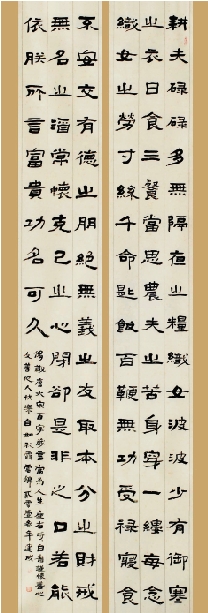 耕夫碌碌多無隔夜之糧織女波波少有御寒
之衣日食三餐當思農夫之苦身穿一縷每念
織女之勞寸絲千命匙飯百鞭無功受祿寢食
不安交有德之朋絕無義之友取本分之財戒
無名之酒常懷克己之心閉卻是非之口若能
依朕所言富貴功名可久
唐太宗百字箴言